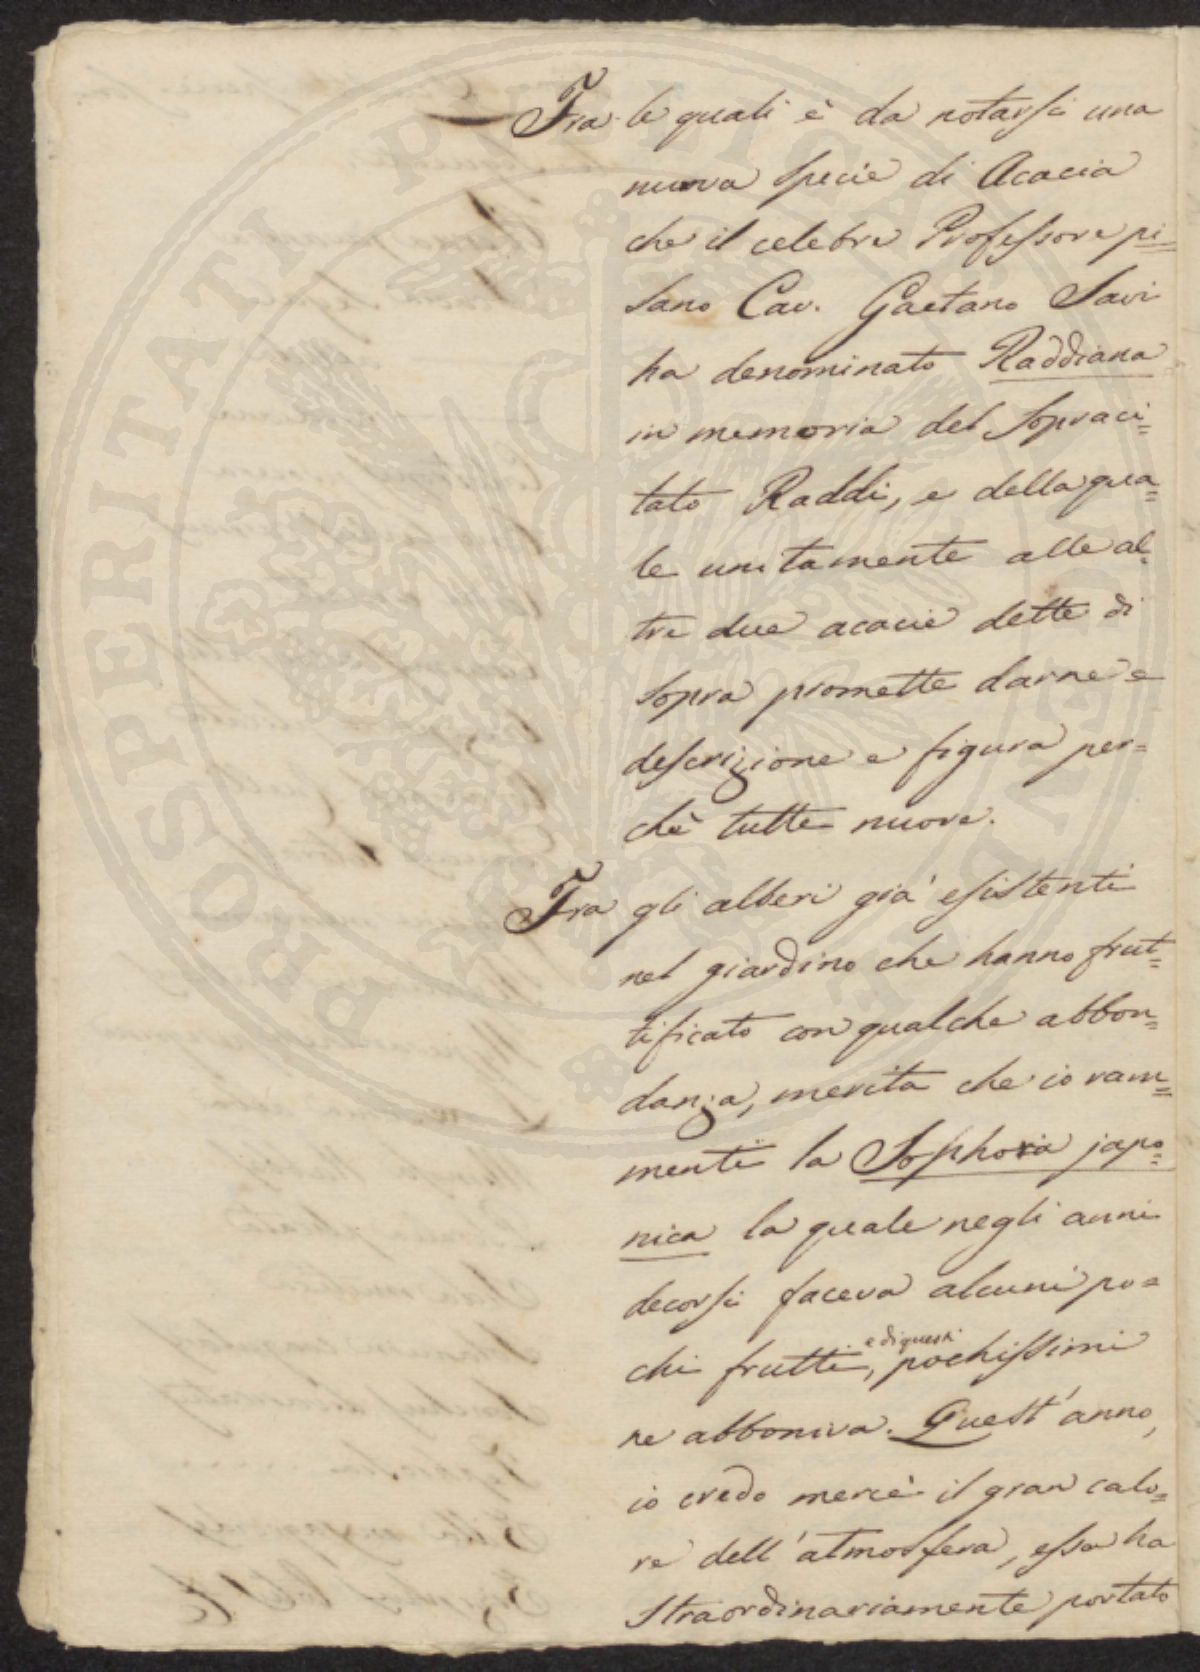 Fra le quali è da notarsi una
nuova specie di Acacia
che il celebre Professore pi=
sano Cav. Gaetano Savi
ha denominato Raddiana
in memoria del sopraci=
tato Raddi, e della qua=
le unitamente alle al=
tre due acacie dette di
sopra promette darne e
descrizione e figura per=
chè tutte nuove.
Fra gli alberi già esistenti
nel giardino che hanno frut=
tificato con qualche abbon=
danza, merita che io ram=
menti la Sophora japo=
nica la quale negli anni
decorsi faceva alcuni po=
chi frutti, e di questi pochissimi
ne abboniva. Quest'anno,
io credo mercè il gran calo=
re dell'atmosfera, essa ha
straordinariamente portato
PROSPERITATI PUBLICAE